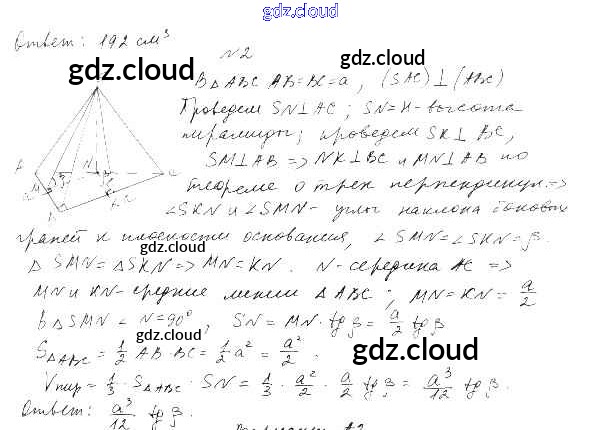 gdz.cloud
Ответ: 192 см³
N2
gdz.cloud
gdz.cloud
В △ABC AB=BC=a, (SAC)⊥(ABC)
Проведем SN⊥AC; SN=H-высота
пирамиды; проведем SK⊥BC,
gdz.cloud
SM⊥AB => NK⊥BC и MN⊥AB по
теореме о трех перпендикул. =>
∠SKN и ∠SMN - углы наклона боковых
граней к плоскости основания, ∠SMN=∠SKN=β.
gdz.cloud
△SMN=△SKN => MN=KN. N-середина AC =>
MN и KN-средние линии △ABC; MN=KN= a/2
В △SMN ∠N=90°, SN=MN·tgβ= a/2 tgβ
gdz.cloud
S△ABC = 1/2 AB·BC = 1/2 a² = a²/2.
gdz.cloud
Vпир = 1/3 · S△ABC · SN = 1/3 · a²/2 · a/2 tgβ = a³/12 tgβ.
Ответ: a³/12 tgβ.